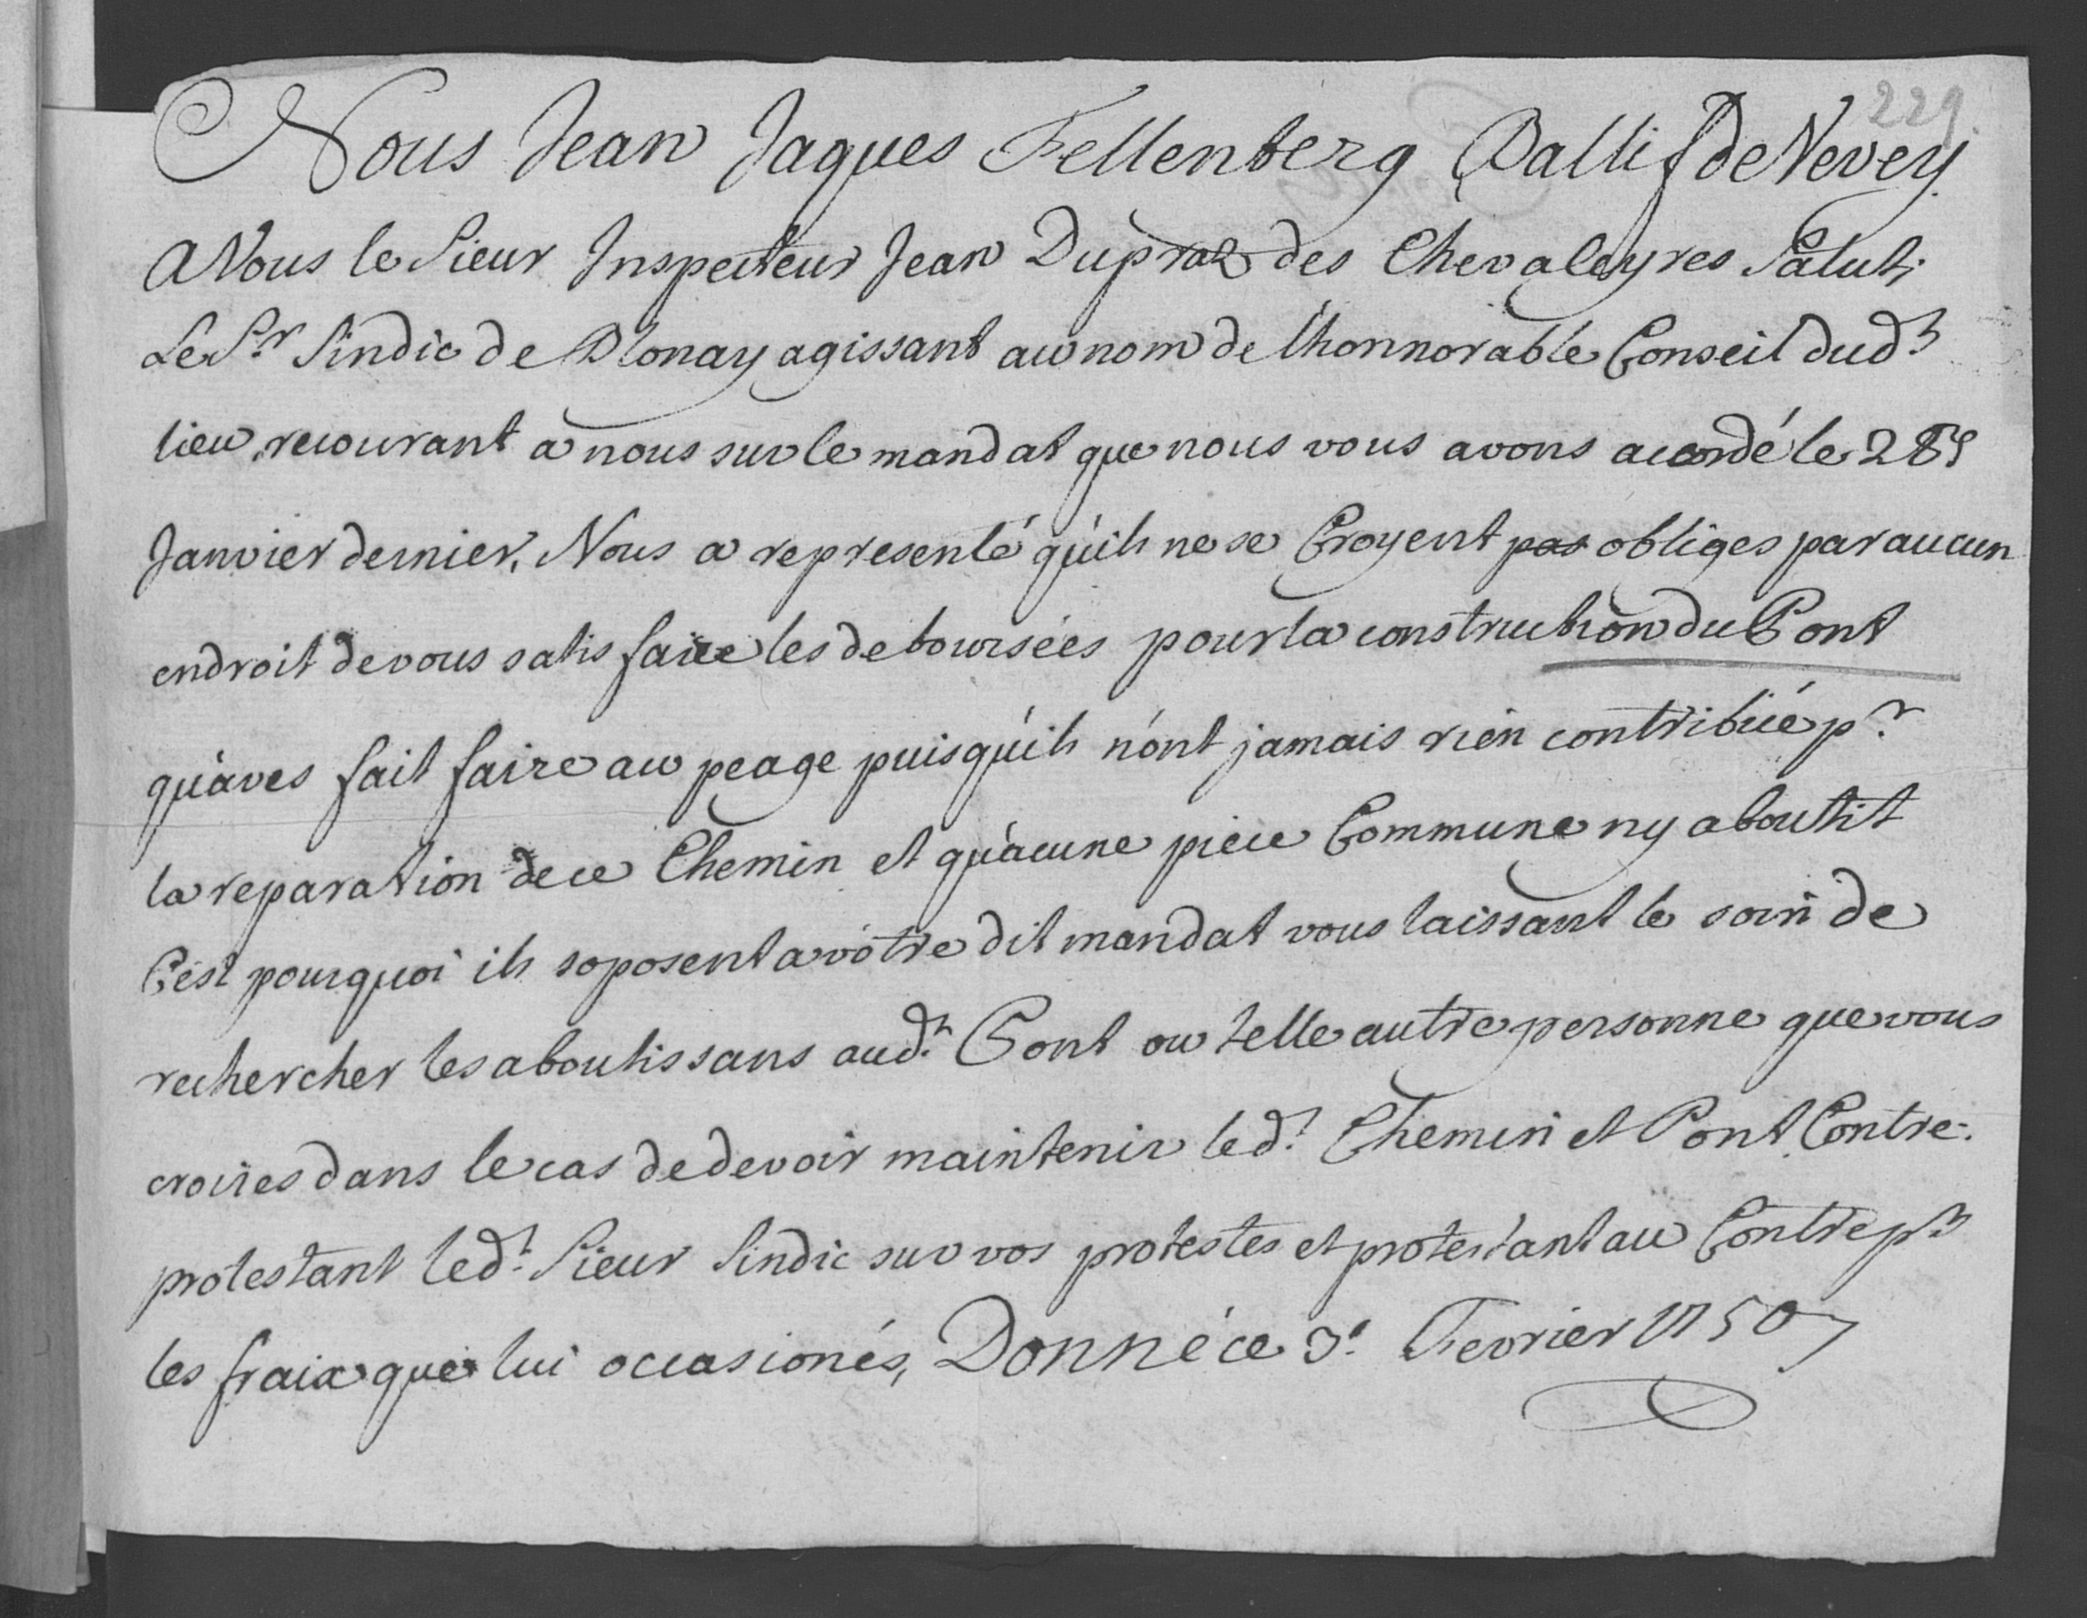 229.
Nous Jean Jaques Fellenberg Ballif de Vevey
A Vous le Sieur Inspecteur Jean Dupraz des Chevaleyres Salut;
Le Sr. Sindic de Blonay agissant au nom de l'honnorable Conseil dudt
lieu, recourant a nous sur le mandat que nous vous avons acordé le 28e
Janvier dernier, Nous a representé qu'ils ne se Croyent pas obliges par aucun
endroit de vous satisfaire les deboursées pour la construction du Pont
qu'aves fait faire au peage puisqu'ils n'ont jamais rien contribuée pr.
la reparation de ce Chemin et qu'acune piece Commune ny aboutit
C'est pourquoi ils soposent a vôtre dit mandat vous laissant le soin de
rechercher les aboutissans audt. Pont ou telle autre personne que vous
croires dans le cas de devoir maintenir ledt. Chemin et Pont, Contre-
protestant ledt. Sieur Sindic sur vos protestes et protestant au Contre pr
les fraix que lui occasionés, Donné ce 3e. Fevrier 1750